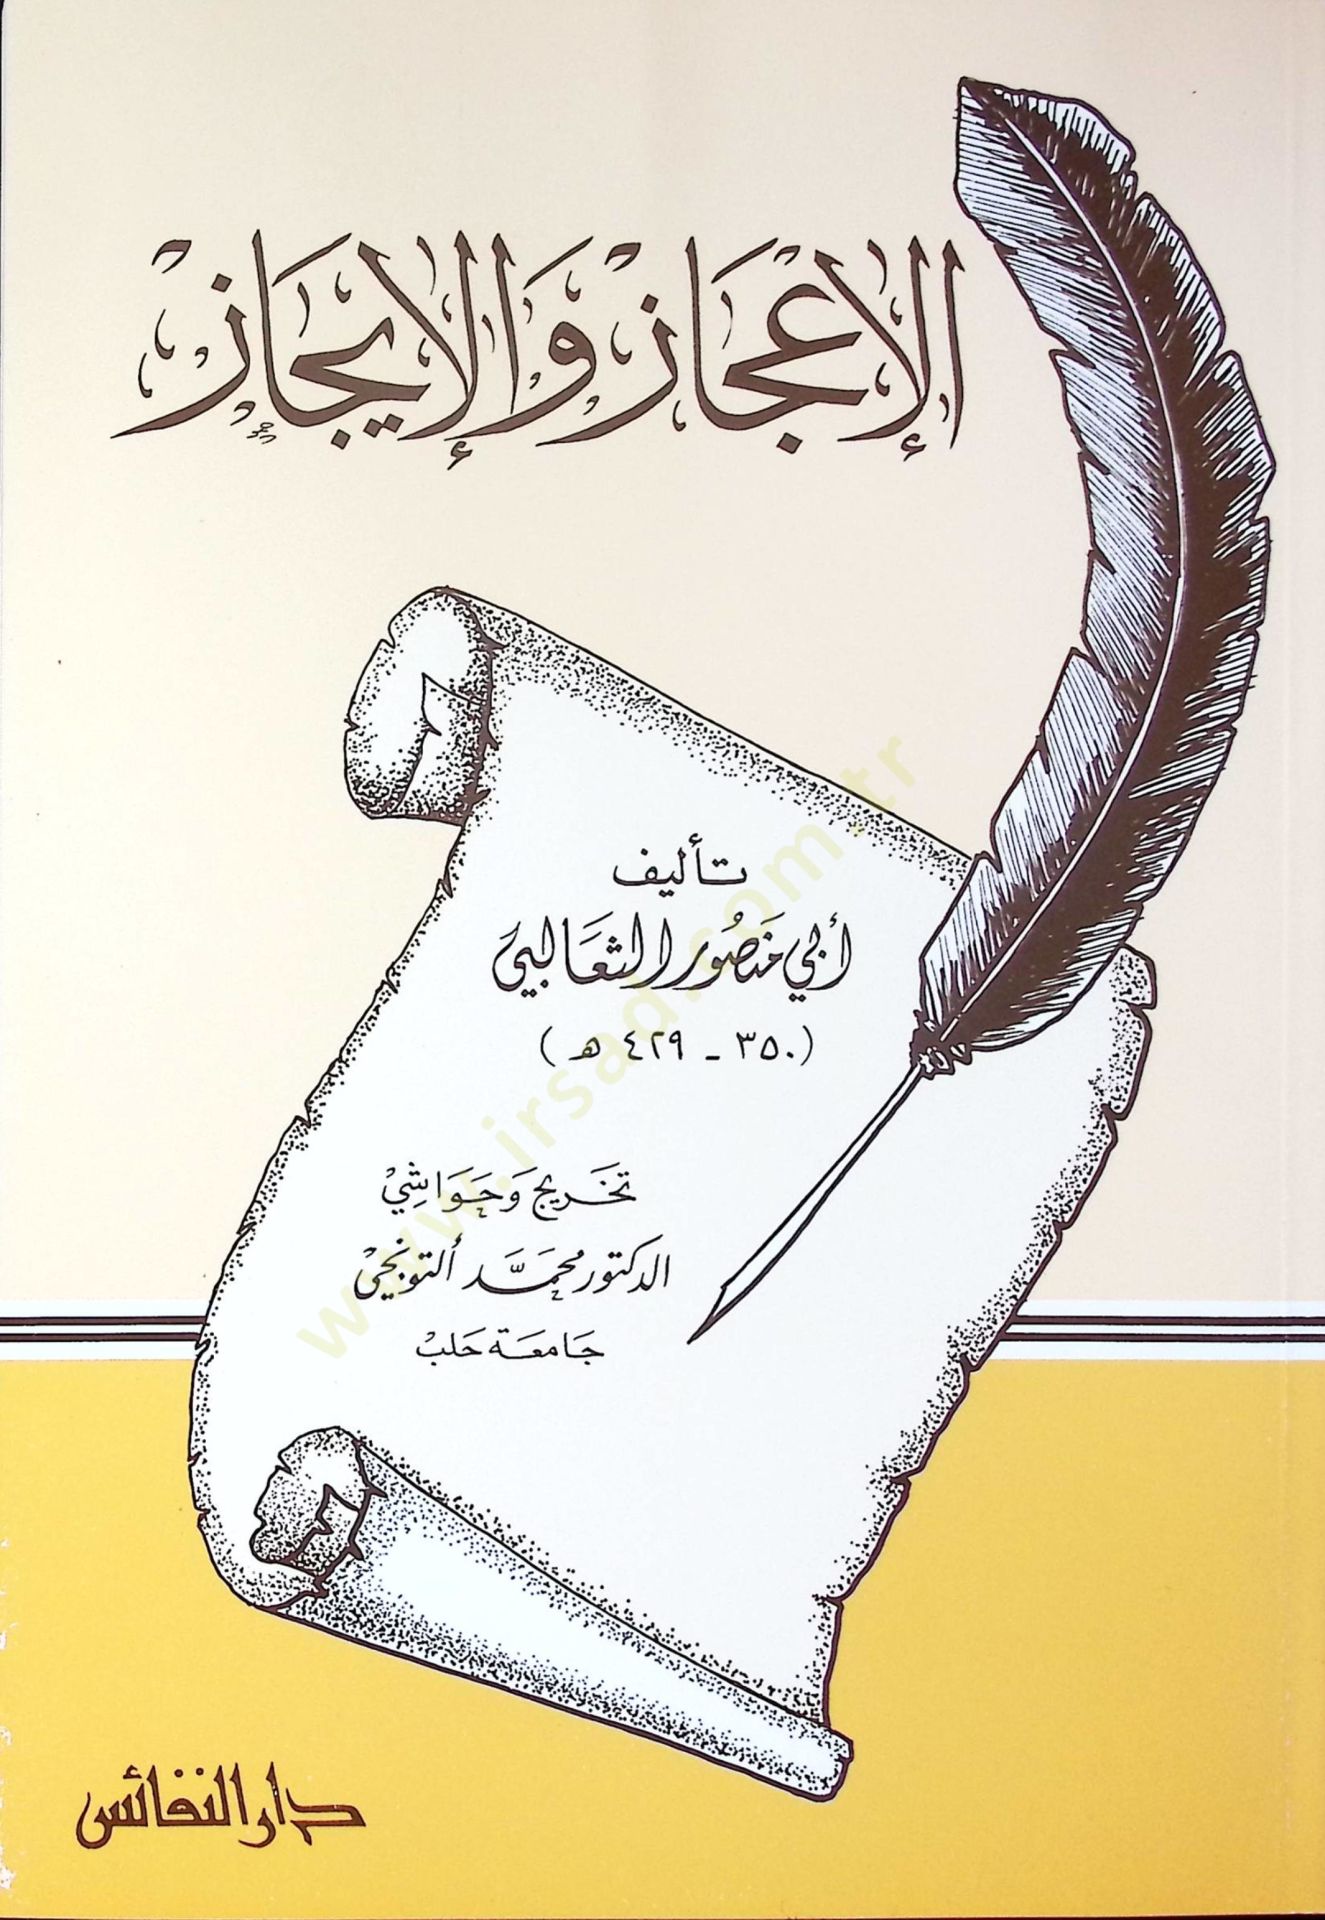 الإعجاز والإيجاز
تأليف
أبي منصور الثعالبي
(٣٥٠ - ٤٢٩ هـ)
تخريج وحواشي
الدكتور محمد ألتونجي
جامعة حلب
دار النفائس
www.irsad.com.tr